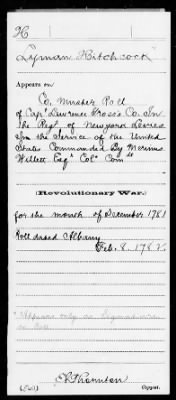 H
Lyman Hitchcock
Appears on
Co. Muster Roll
of Capt Lawrence Gross's Co. In
the Regt of Newyork Levies
In the Service of the United
States Commanded By Marinus
Willett Esqr Colo Comdt
(Revolutionary War.)
for the month of December 1781
Roll dated Albany
Feb. 8, 1782.
*Appears only as signed
on Roll
Thornton
Copyist.